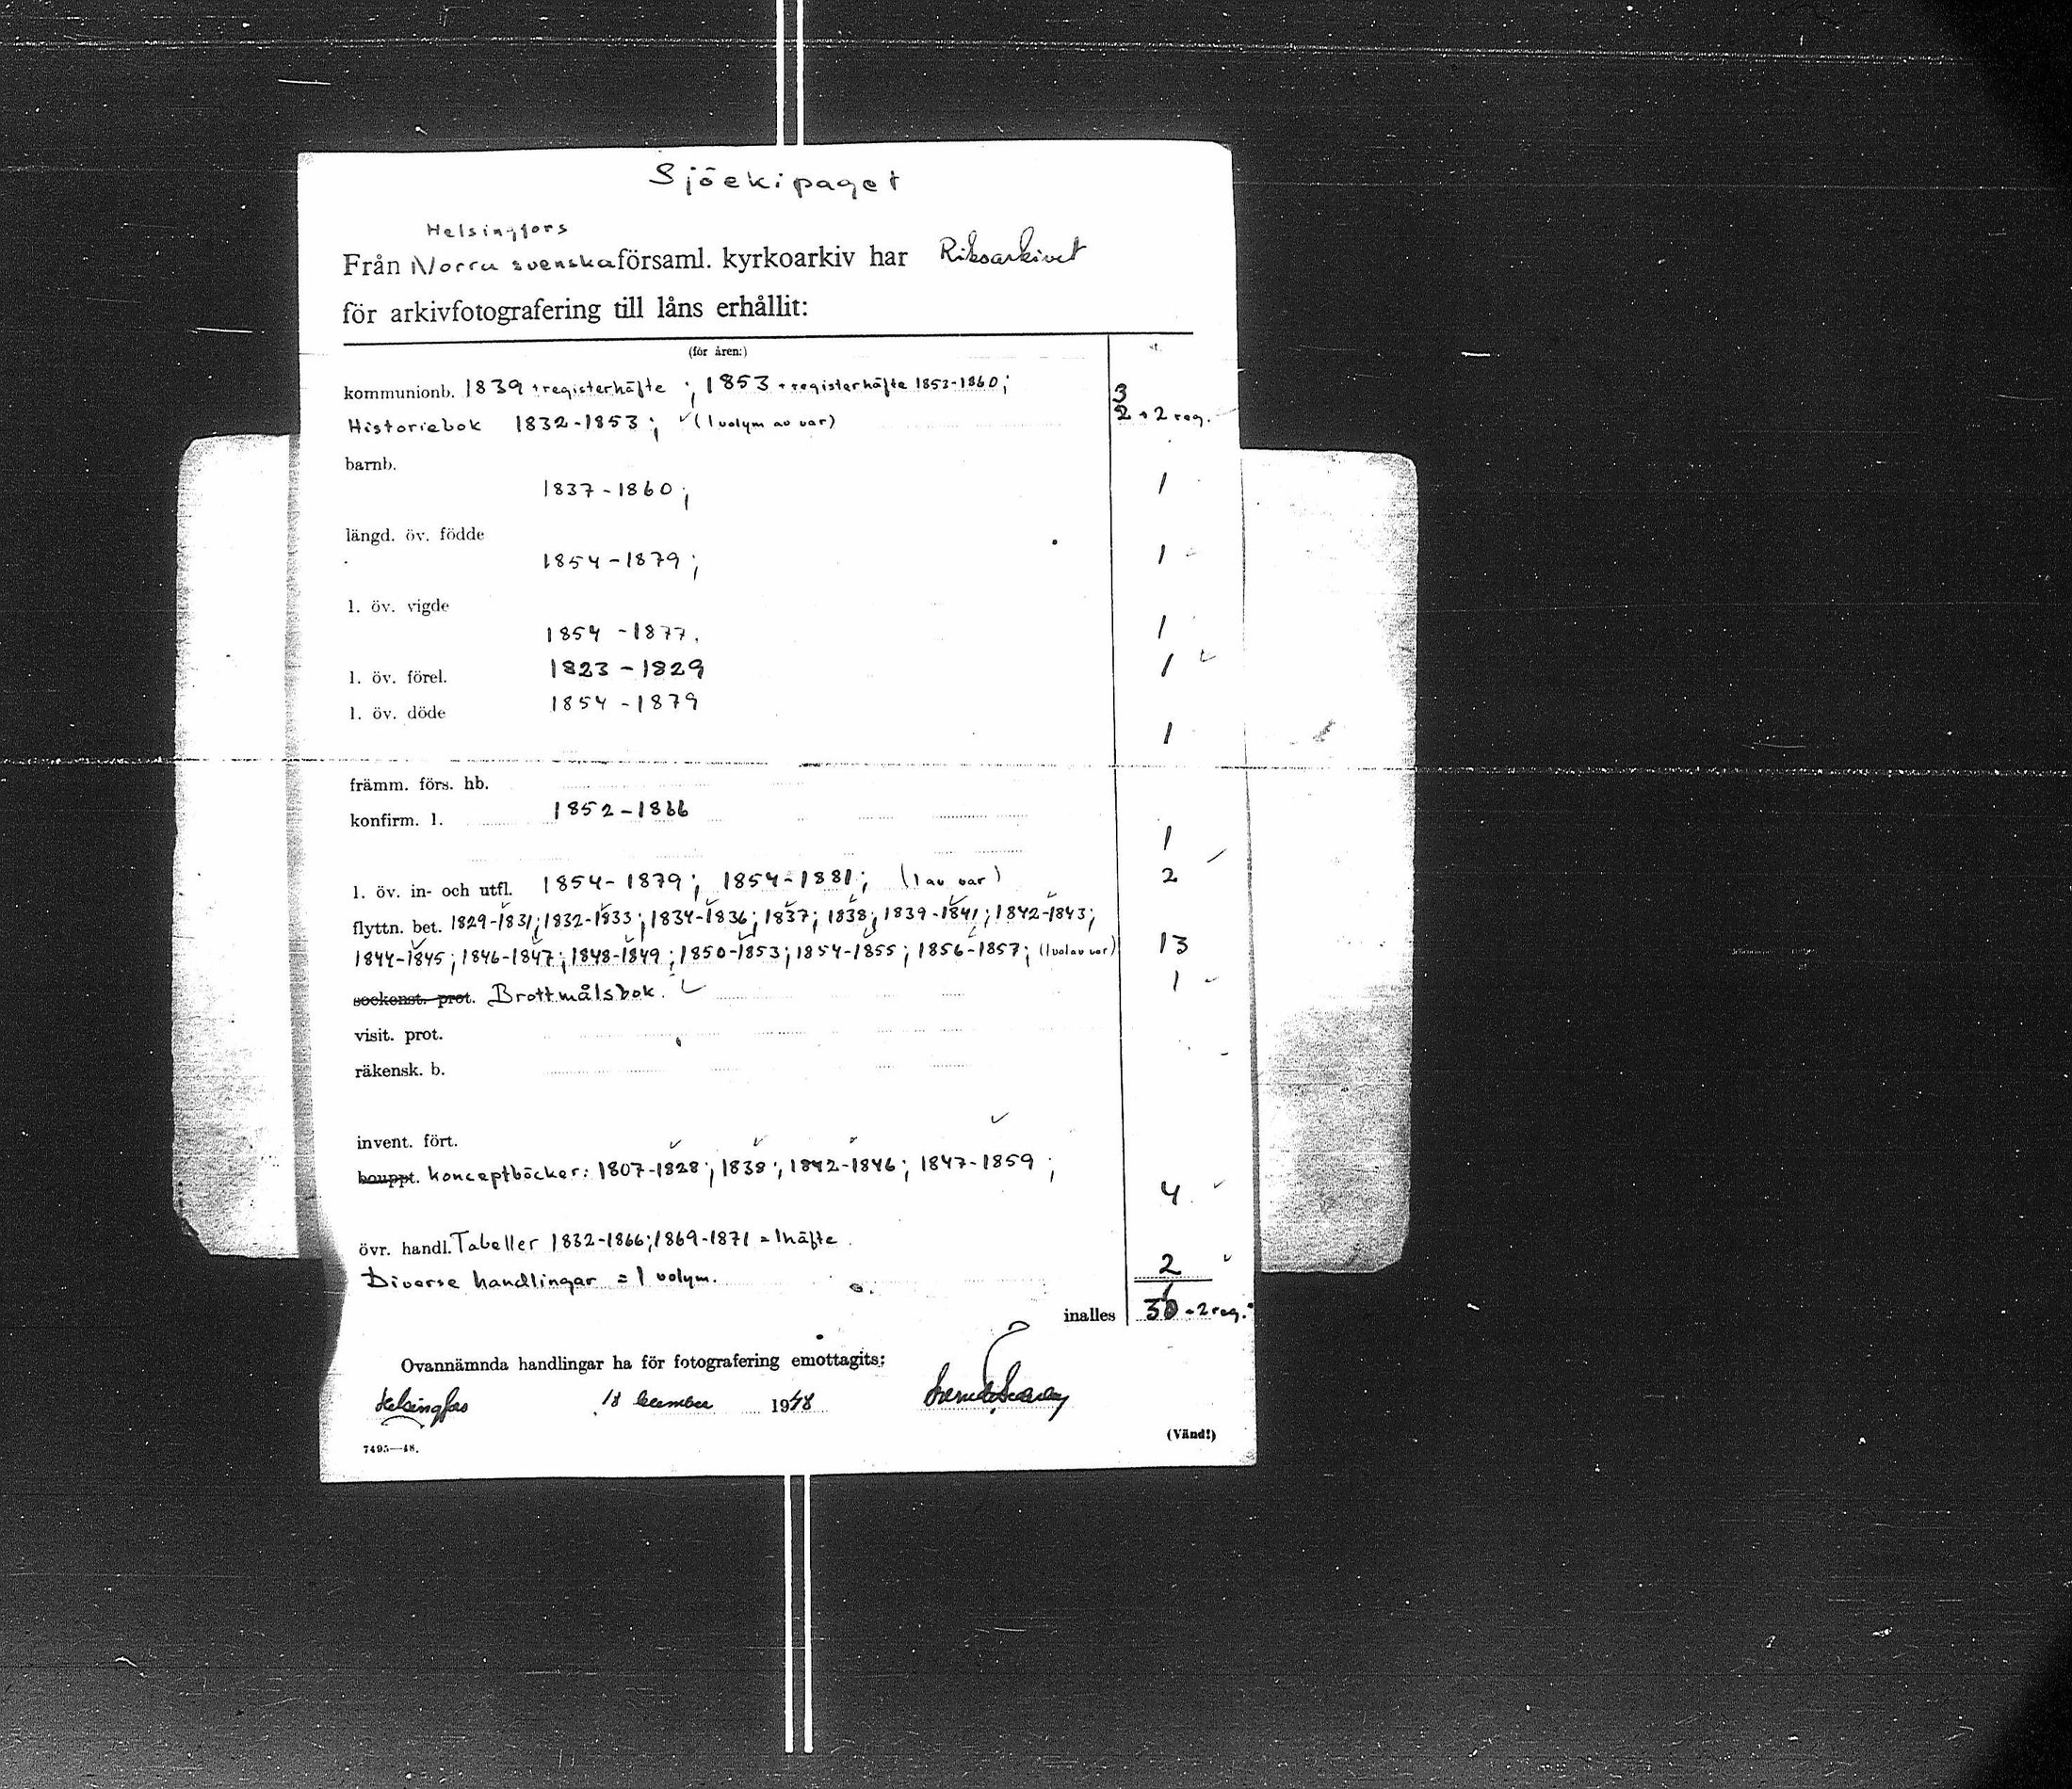 Sjöekipaget
Helsingfors
Från Norra svenska församl. kyrkoarkiv har Riksarkivet
för arkivfotografering till låns erhållit:
(för åren:) st.
kommunionb. 1839 + registerhäfte ; 1853 + registerhäfte 1853-1860; 3
Historiebok 1832-1853; (1 volym av var) 2 + 2 reg.
barnb.
1837-1860; 1
längd. öv. födde
1854-1879; 1
l. öv. vigde
1854-1877. 1
l. öv. förel. 1823-1829 1
l. öv. döde 1854-1879
1
främm. förs. hb.
konfirm. l. 1852-1866
1
l. öv. in- och utfl. 1854-1879; 1854-1881; (1 av var) 2
flyttn. bet. 1829-1831; 1832-1833; 1834-1836; 1837; 1838; 1839-1841; 1842-1843;
1844-1845; 1846-1847; 1848-1849; 1850-1853; 1854-1855; 1856-1857; (1 vol av var) 13
sockenst. prot. Brottmålsbok. 1
visit. prot.
räkensk. b.
invent. fört.
bouppt. Konceptböcker: 1807-1828; 1838; 1842-1846; 1847-1859; 4
övr. handl. Tabeller 1832-1866; 1869-1871 = 1 häfte
Diverse handlingar = 1 volym. 2
inalles + 2 reg.
Ovannämnda handlingar ha för fotografering emottagits:
Helsingfors 18 december 1948
(Vänd!)
7495—48.